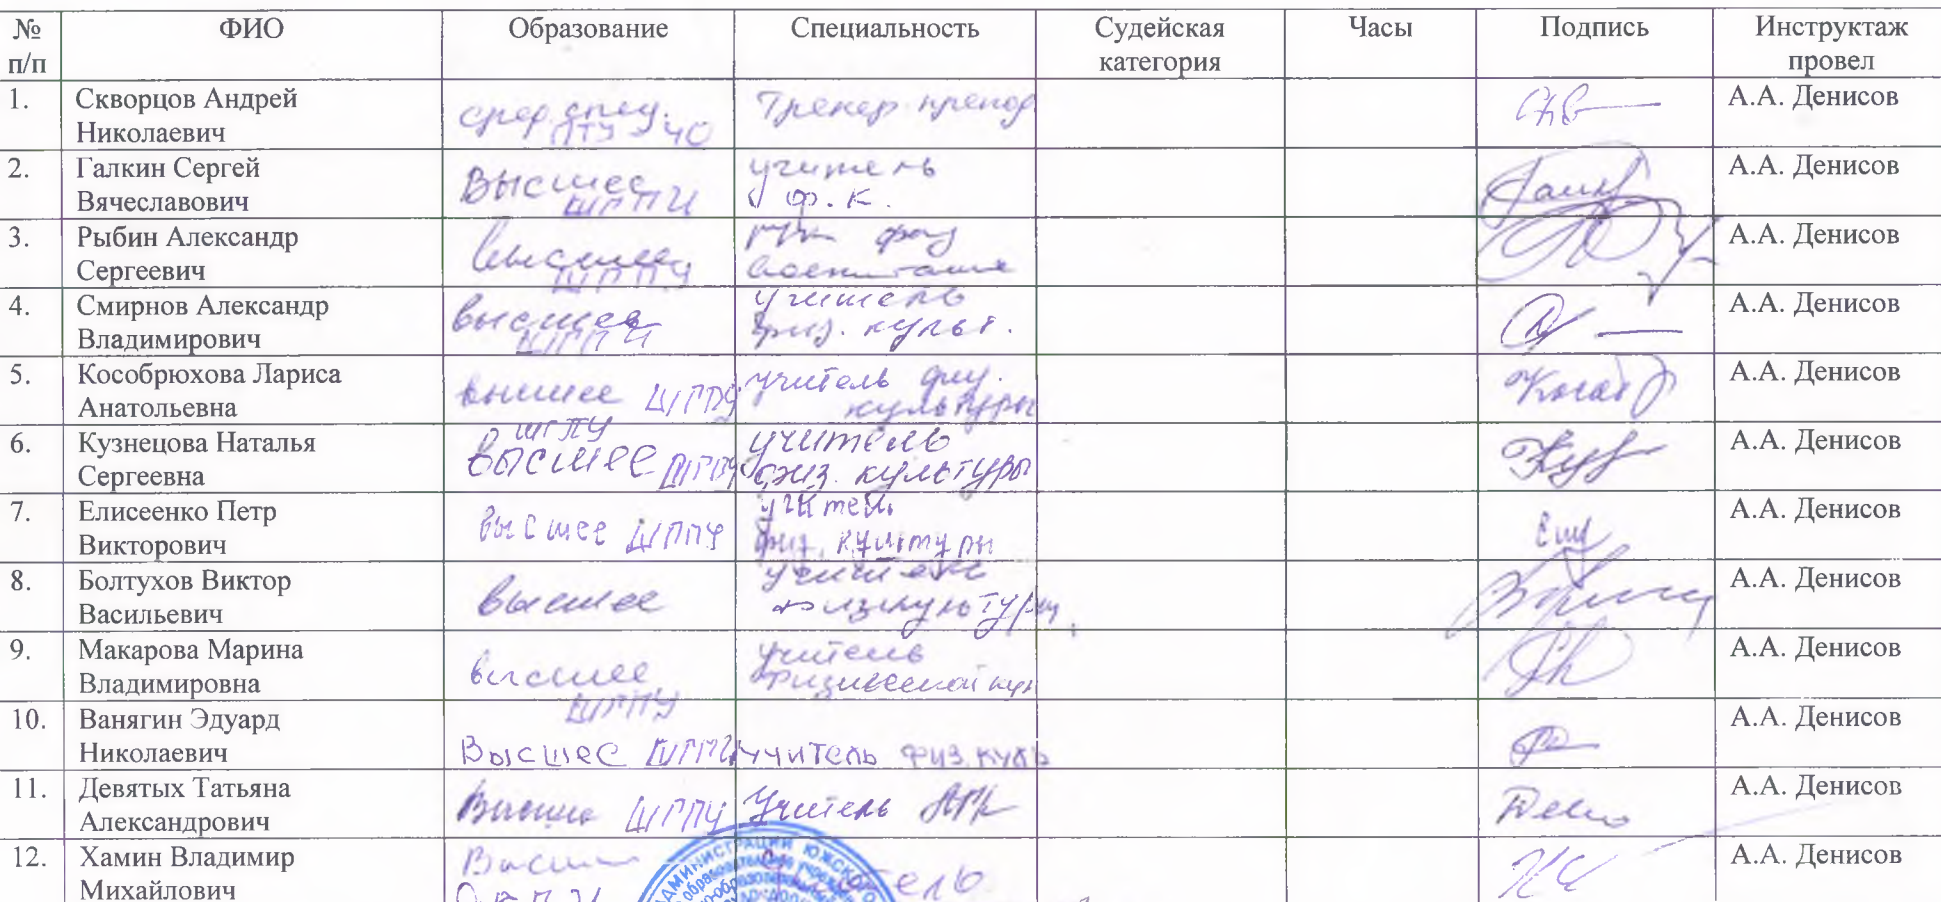 № п/п ФИО Образование Специальность Судейская категория Часы Подпись Инструктаж провел
1. Скворцов Андрей Николаевич сред. спец. ПТУ 40 Тренер препод А.А. Денисов
2. Галкин Сергей Вячеславович Высшее ШГПИ учитель ф.к. А.А. Денисов
3. Рыбин Александр Сергеевич высшее ШГПУ рук физ воспитание А.А. Денисов
4. Смирнов Александр Владимирович высшее ШГПИ учитель физ. культ. А.А. Денисов
5. Кособрюхова Лариса Анатольевна высшее ШГПУ учитель физ. культуры А.А. Денисов
6. Кузнецова Наталья Сергеевна ШГПУ высшее ШГПУ учитель физ. культуры А.А. Денисов
7. Елисеенко Петр Викторович высшее ШГПУ учитель физ. культуры А.А. Денисов
8. Болтухов Виктор Васильевич высшее учитель физкультуры А.А. Денисов
9. Макарова Марина Владимировна высшее ШГПУ учитель физической кул А.А. Денисов
10. Ванягин Эдуард Николаевич Высшее ШГПУ учитель физ. куль А.А. Денисов
11. Девятых Татьяна Александрович Высшее ШГПУ Учитель А.А. Денисов
12. Хамин Владимир Михайлович А.А. Денисов